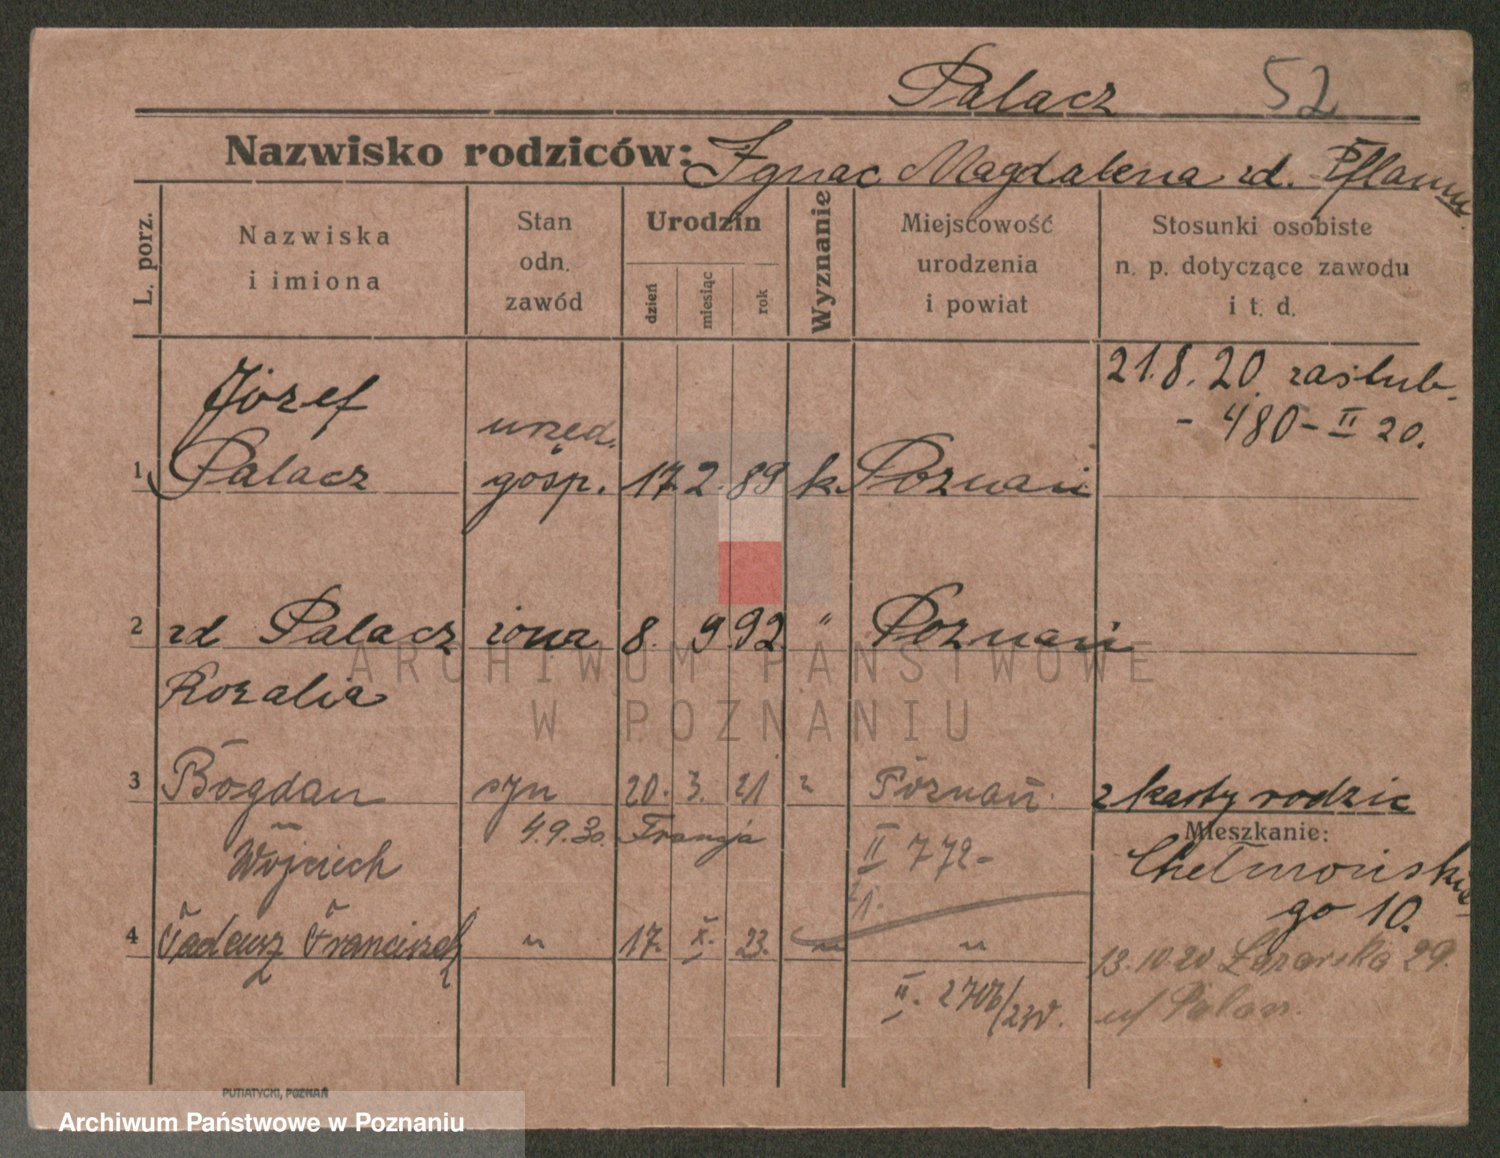 Palacz 52
Nazwisko rodziców: Ignac Magdalena rd. Pflaum
L. porz.
Nazwiska i imiona
Stan odn. zawód
Urodzin
dzień miesiąc rok
Wyznanie
Miejscowość urodzenia i powiat
Stosunki osobiste n. p. dotyczące zawodu i t. d.
21.8.20. zaślub.
- 480 - II 20.
Józef urzęd.
1 Palacz gosp. 17. 2. 89 k. Poznań
2 rd Palacz żona 8. 9. 92. " Poznań
Rozalia
3 Bogdan syn 20. 3. 21 " Poznań z karty rodzic
4.9.30. Francja
Mieszkanie:
Wojciech II 772-
21.
Chełmońskie-
go 10.
4 Tadeusz Franciszek " 17. X. 23. " "
13.10.20 Łazarska 29.
II. 2706/23V.
u/ Palacz.
PUTIATYCKI, POZNAŃ
ARCHIWUM PAŃSTWOWE
W POZNANIU
Archiwum Państwowe w Poznaniu